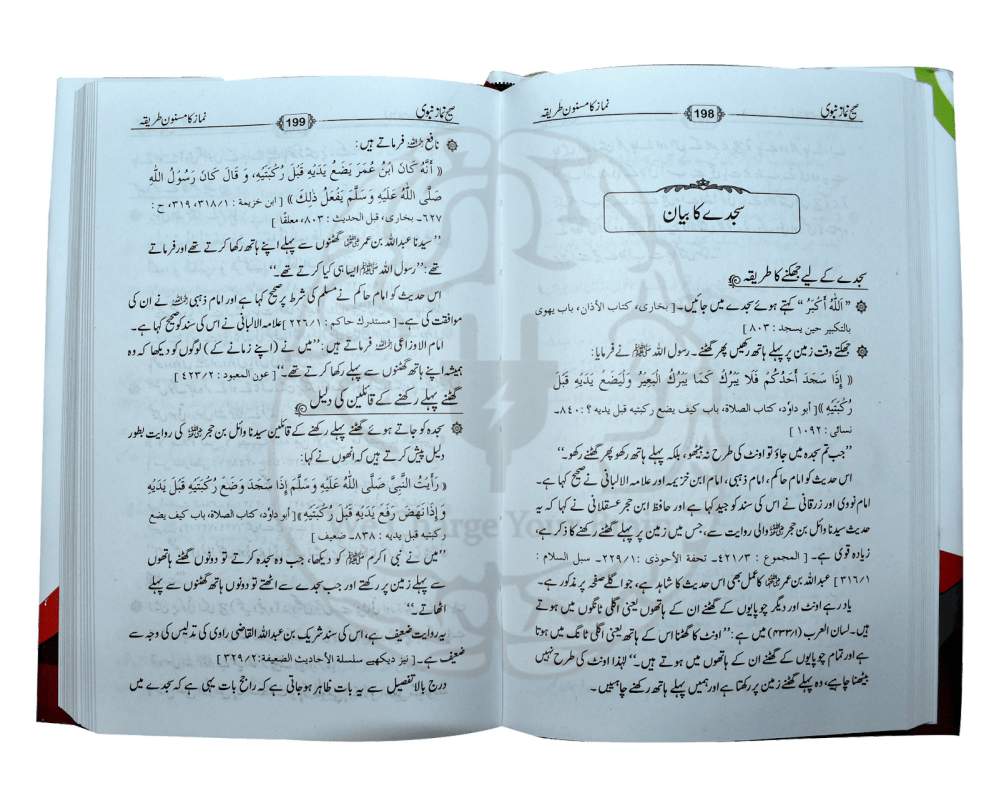 صحیح نماز نبوی
198
نماز کا مسنون طریقہ
سجدے کا بیان
سجدے کے لیے جھکنے کا طریقہ
”اَللّٰهُ أَكْبَرُ“ کہتے ہوئے سجدے میں جائیں۔ [ بخاری، کتاب الأذان، باب یهوی
بالتکبیر حین یسجد : ٨٠٣ ]
جھکتے وقت زمین پر پہلے ہاتھ رکھیں پھر گھٹنے۔ رسول اللہ ﷺ نے فرمایا:
« إِذَا سَجَدَ أَحَدُكُمْ فَلَا يَبْرُكْ كَمَا يَبْرُكُ الْبَعِيْرُ وَلْيَضَعْ يَدَيْهِ قَبْلَ
رُكْبَتَيْهِ » [ أبو داوٗد، کتاب الصلاة، باب کیف یضع رکبتیه قبل یدیه ؟ : ٨٤٠۔
نسائی : ١٠٩٢ ]
”جب تم سجدہ میں جاؤ تو اونٹ کی طرح نہ بیٹھو، بلکہ پہلے ہاتھ رکھو پھر گھٹنے رکھو۔“
اس حدیث کو امام حاکم، امام ذہبی، امام ابن خزیمہ اور علامہ الالبانی نے صحیح کہا ہے۔
امام نووی اور زرقانی نے اس کی سند کو جید کہا ہے اور حافظ ابن حجر عسقلانی نے کہا کہ یہ
حدیث سیدنا وائل بن حجر رضی اللہ عنہ والی روایت سے، جس میں زمین پر پہلے گھٹنے رکھنے کا ذکر ہے،
زیادہ قوی ہے۔ [ المجموع : ٤٢١/٣۔ تحفة الأحوذی : ٢٢٩/١۔ سبل السلام :
٣١٦/١ ] عبداللہ بن عمر رضی اللہ عنہما کا عمل بھی اس حدیث کا شاہد ہے، جو اگلے صفحے پر مذکور ہے۔
یاد رہے اونٹ اور دیگر چوپایوں کے گھٹنے ان کے ہاتھوں یعنی اگلی ٹانگوں میں ہوتے
ہیں۔ لسان العرب (٤٣٣/١) میں ہے: ”اونٹ کا گھٹنا اس کے ہاتھ یعنی اگلی ٹانگ میں ہوتا
ہے اور تمام چوپایوں کے گھٹنے ان کے ہاتھوں میں ہوتے ہیں۔“ لہٰذا اونٹ کی طرح نہیں
بیٹھنا چاہیے، وہ پہلے گھٹنے زمین پر رکھتا ہے اور ہمیں پہلے ہاتھ رکھنے چاہییں۔
صحیح نماز نبوی
199
نماز کا مسنون طریقہ
نافع رحمہ اللہ فرماتے ہیں:
« أَنَّهُ كَانَ ابْنُ عُمَرَ يَضَعُ يَدَيْهِ قَبْلَ رُكْبَتَيْهِ، وَ قَالَ كَانَ رَسُوْلُ اللّٰهِ
صَلَّى اللّٰهُ عَلَيْهِ وَسَلَّمَ يَفْعَلُ ذٰلِكَ » [ ابن خزیمة : ٣١٨/١، ٣١٩، ح :
٦٢٧۔ بخاری، قبل الحدیث : ٨٠٣، معلقًا ]
”سیدنا عبداللہ بن عمر رضی اللہ عنہما گھٹنوں سے پہلے اپنے ہاتھ رکھا کرتے تھے اور فرماتے
تھے: ”رسول اللہ ﷺ ایسا ہی کیا کرتے تھے۔“
اس حدیث کو امام حاکم نے مسلم کی شرط پر صحیح کہا ہے اور امام ذہبی رحمہ اللہ نے ان کی
موافقت کی ہے۔ [ مستدرك حاکم : ٢٢٦/١ ] علامہ الالبانی نے اس کی سند کو صحیح کہا ہے۔
امام الاوزاعی رحمہ اللہ فرماتے ہیں: ”میں نے (اپنے زمانے کے) لوگوں کو دیکھا کہ وہ
ہمیشہ اپنے ہاتھ گھٹنوں سے پہلے رکھا کرتے تھے۔“ [ عون المعبود : ٤٢٣/٢ ]
گھٹنے پہلے رکھنے کے قائلین کی دلیل
سجدہ کو جاتے ہوئے گھٹنے پہلے رکھنے کے قائلین سیدنا وائل بن حجر رضی اللہ عنہ کی روایت بطور
دلیل پیش کرتے ہیں کہ انھوں نے کہا:
« رَأَيْتُ النَّبِيَّ صَلَّى اللّٰهُ عَلَيْهِ وَسَلَّمَ إِذَا سَجَدَ وَضَعَ رُكْبَتَيْهِ قَبْلَ يَدَيْهِ
وَ إِذَا نَهَضَ رَفَعَ يَدَيْهِ قَبْلَ رُكْبَتَيْهِ » [ أبو داوٗد، کتاب الصلاة، باب کیف یضع
رکبتیه قبل یدیه : ٨٣٨۔ ضعیف ]
”میں نے نبی اکرم ﷺ کو دیکھا، جب وہ سجدہ کرتے تو دونوں گھٹنے ہاتھوں
سے پہلے زمین پر رکھتے اور جب سجدے سے اٹھتے تو دونوں ہاتھ گھٹنوں سے پہلے
اٹھاتے۔“
یہ روایت ضعیف ہے، اس کی سند شریک بن عبداللہ القاضی راوی کی تدلیس کی وجہ سے
ضعیف ہے۔ [ نیز دیکھیے سلسلة الأحادیث الضعیفة: ٣٢٩/٢ ]
درج بالا تفصیل سے یہ بات ظاہر ہو جاتی ہے کہ راجح بات یہی ہے کہ سجدے میں